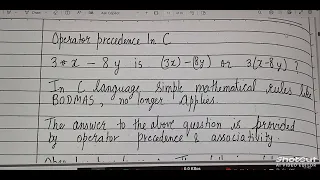 Operator precedence In C
3*x - 8y is (3x)-(8y) or 3(x-8y) ?
In C language simple mathematical rules like
BODMAS, no longer applies.
The answer to the above question is provided
by operator precedence & associativity
ShotCut